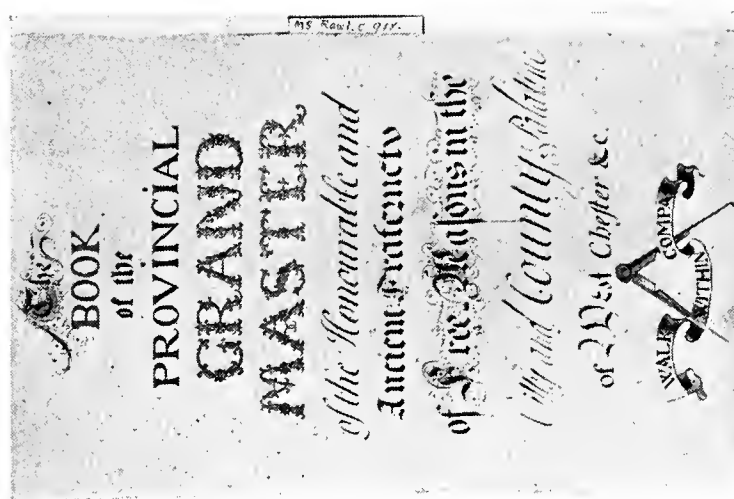 MS Rawl. C 918.
The
BOOK
of the
PROVINCIAL
GRAND
MASTER
of the Honourable and
Ancient Fraternety
of Free Masons in the
Citty and County Palatine
of West Chester &c.
WALK WITHIN COMPA